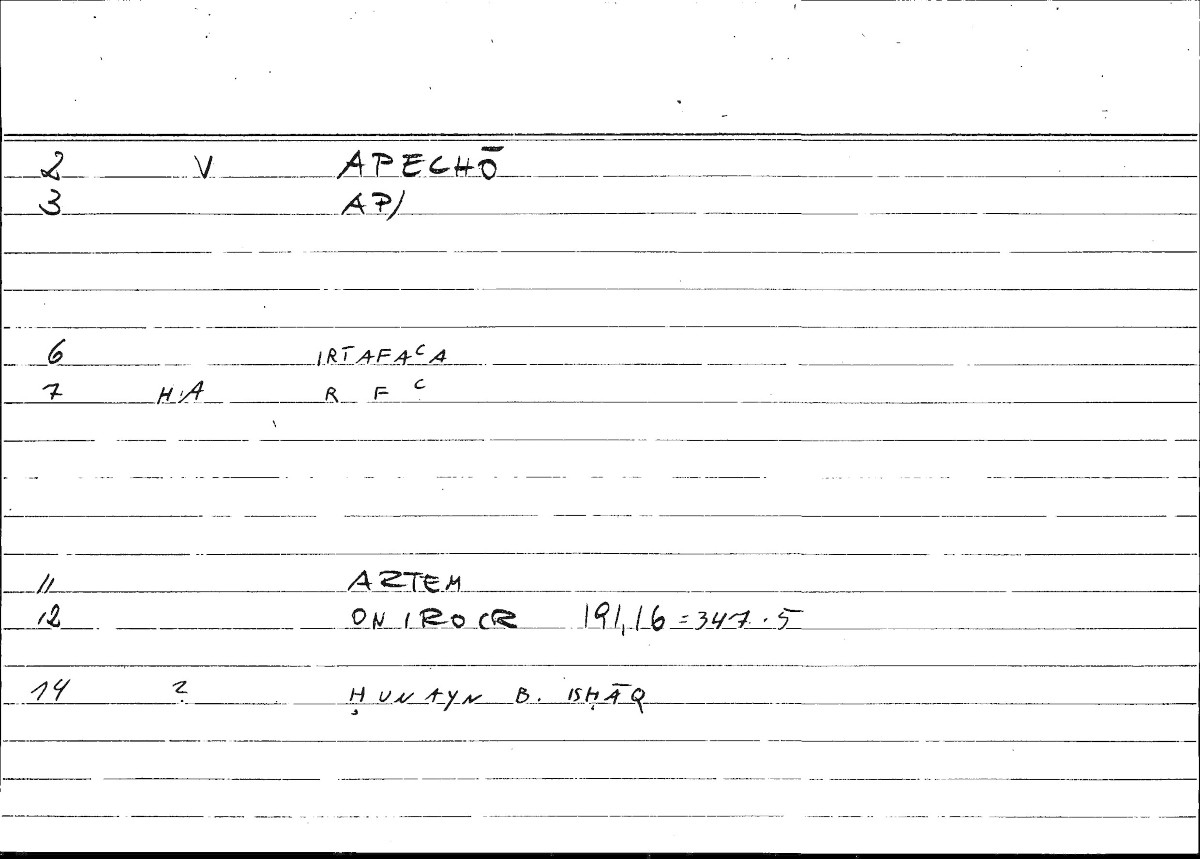 2 V APECHŌ
3 AP/
6 IRTAFAᶜA
7 H.A R F ᶜ
11 ARTEM
12 ONIROCR 191,16 = 347.5
14 ? ḤUNAYN B. ISḤĀQ